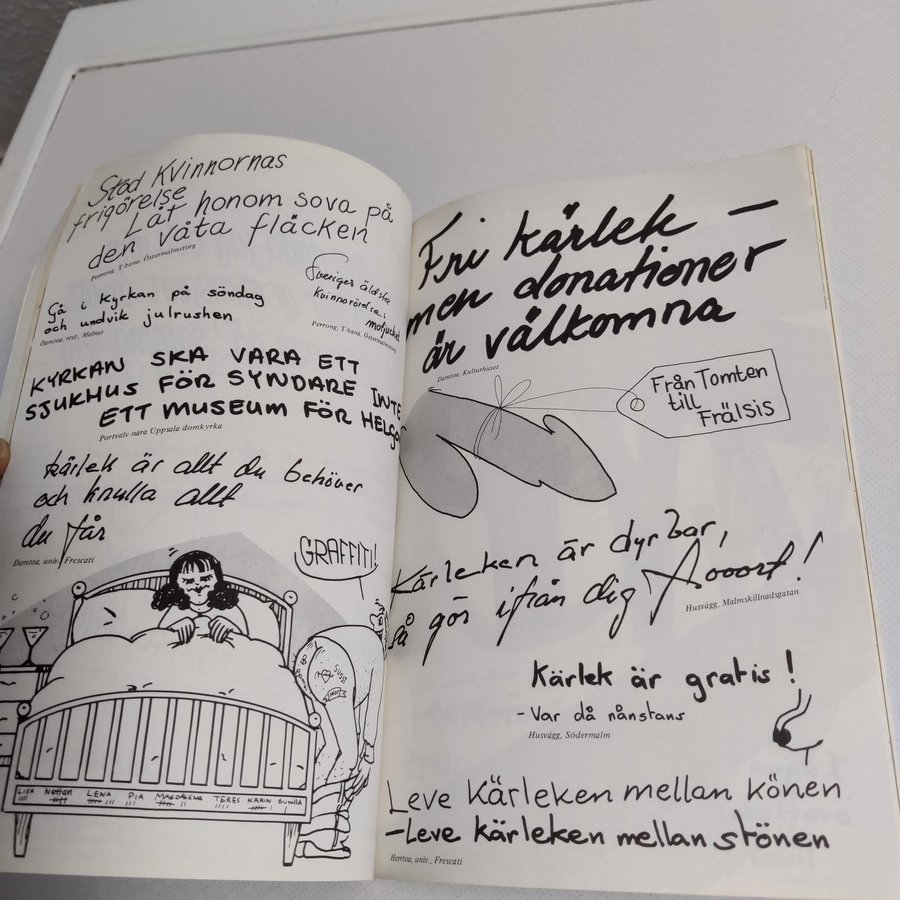 Stöd Kvinnornas
frigörelse
Låt honom sova på
den våta fläcken
Perrong, T-bana, Östermalmstorg
Sveriges äldsta
kvinnorörelse:
motjucket
Perrong, T-bana, Östermalmstorg
Gå i kyrkan på söndag
och undvik julrushen
Damtoa, rest., Malmö
KYRKAN SKA VARA ETT
SJUKHUS FÖR SYNDARE INTE
ETT MUSEUM FÖR HELGO
Portvalv nära Uppsala domkyrka
Kärlek är allt du behöver
och knulla allt
du får
Damtoa, univ., Frescati
GRAFFITI!
SUSSI
LISA Nettan LENA PIA MAGDALENA TERES KARIN GUNILLA
Fri kärlek –
men donationer
är välkomna
Damtoa, Kulturhuset
Från Tomten
till
Frälsis
Kärleken är dyrbar,
så gör ifrån dig Aooort!
Husvägg, Malmskillnadsgatan
Kärlek är gratis!
- Var då nånstans
Husvägg, Södermalm
Leve Kärleken mellan könen
-Leve kärleken mellan stönen
Herrtoa, univ., Frescati